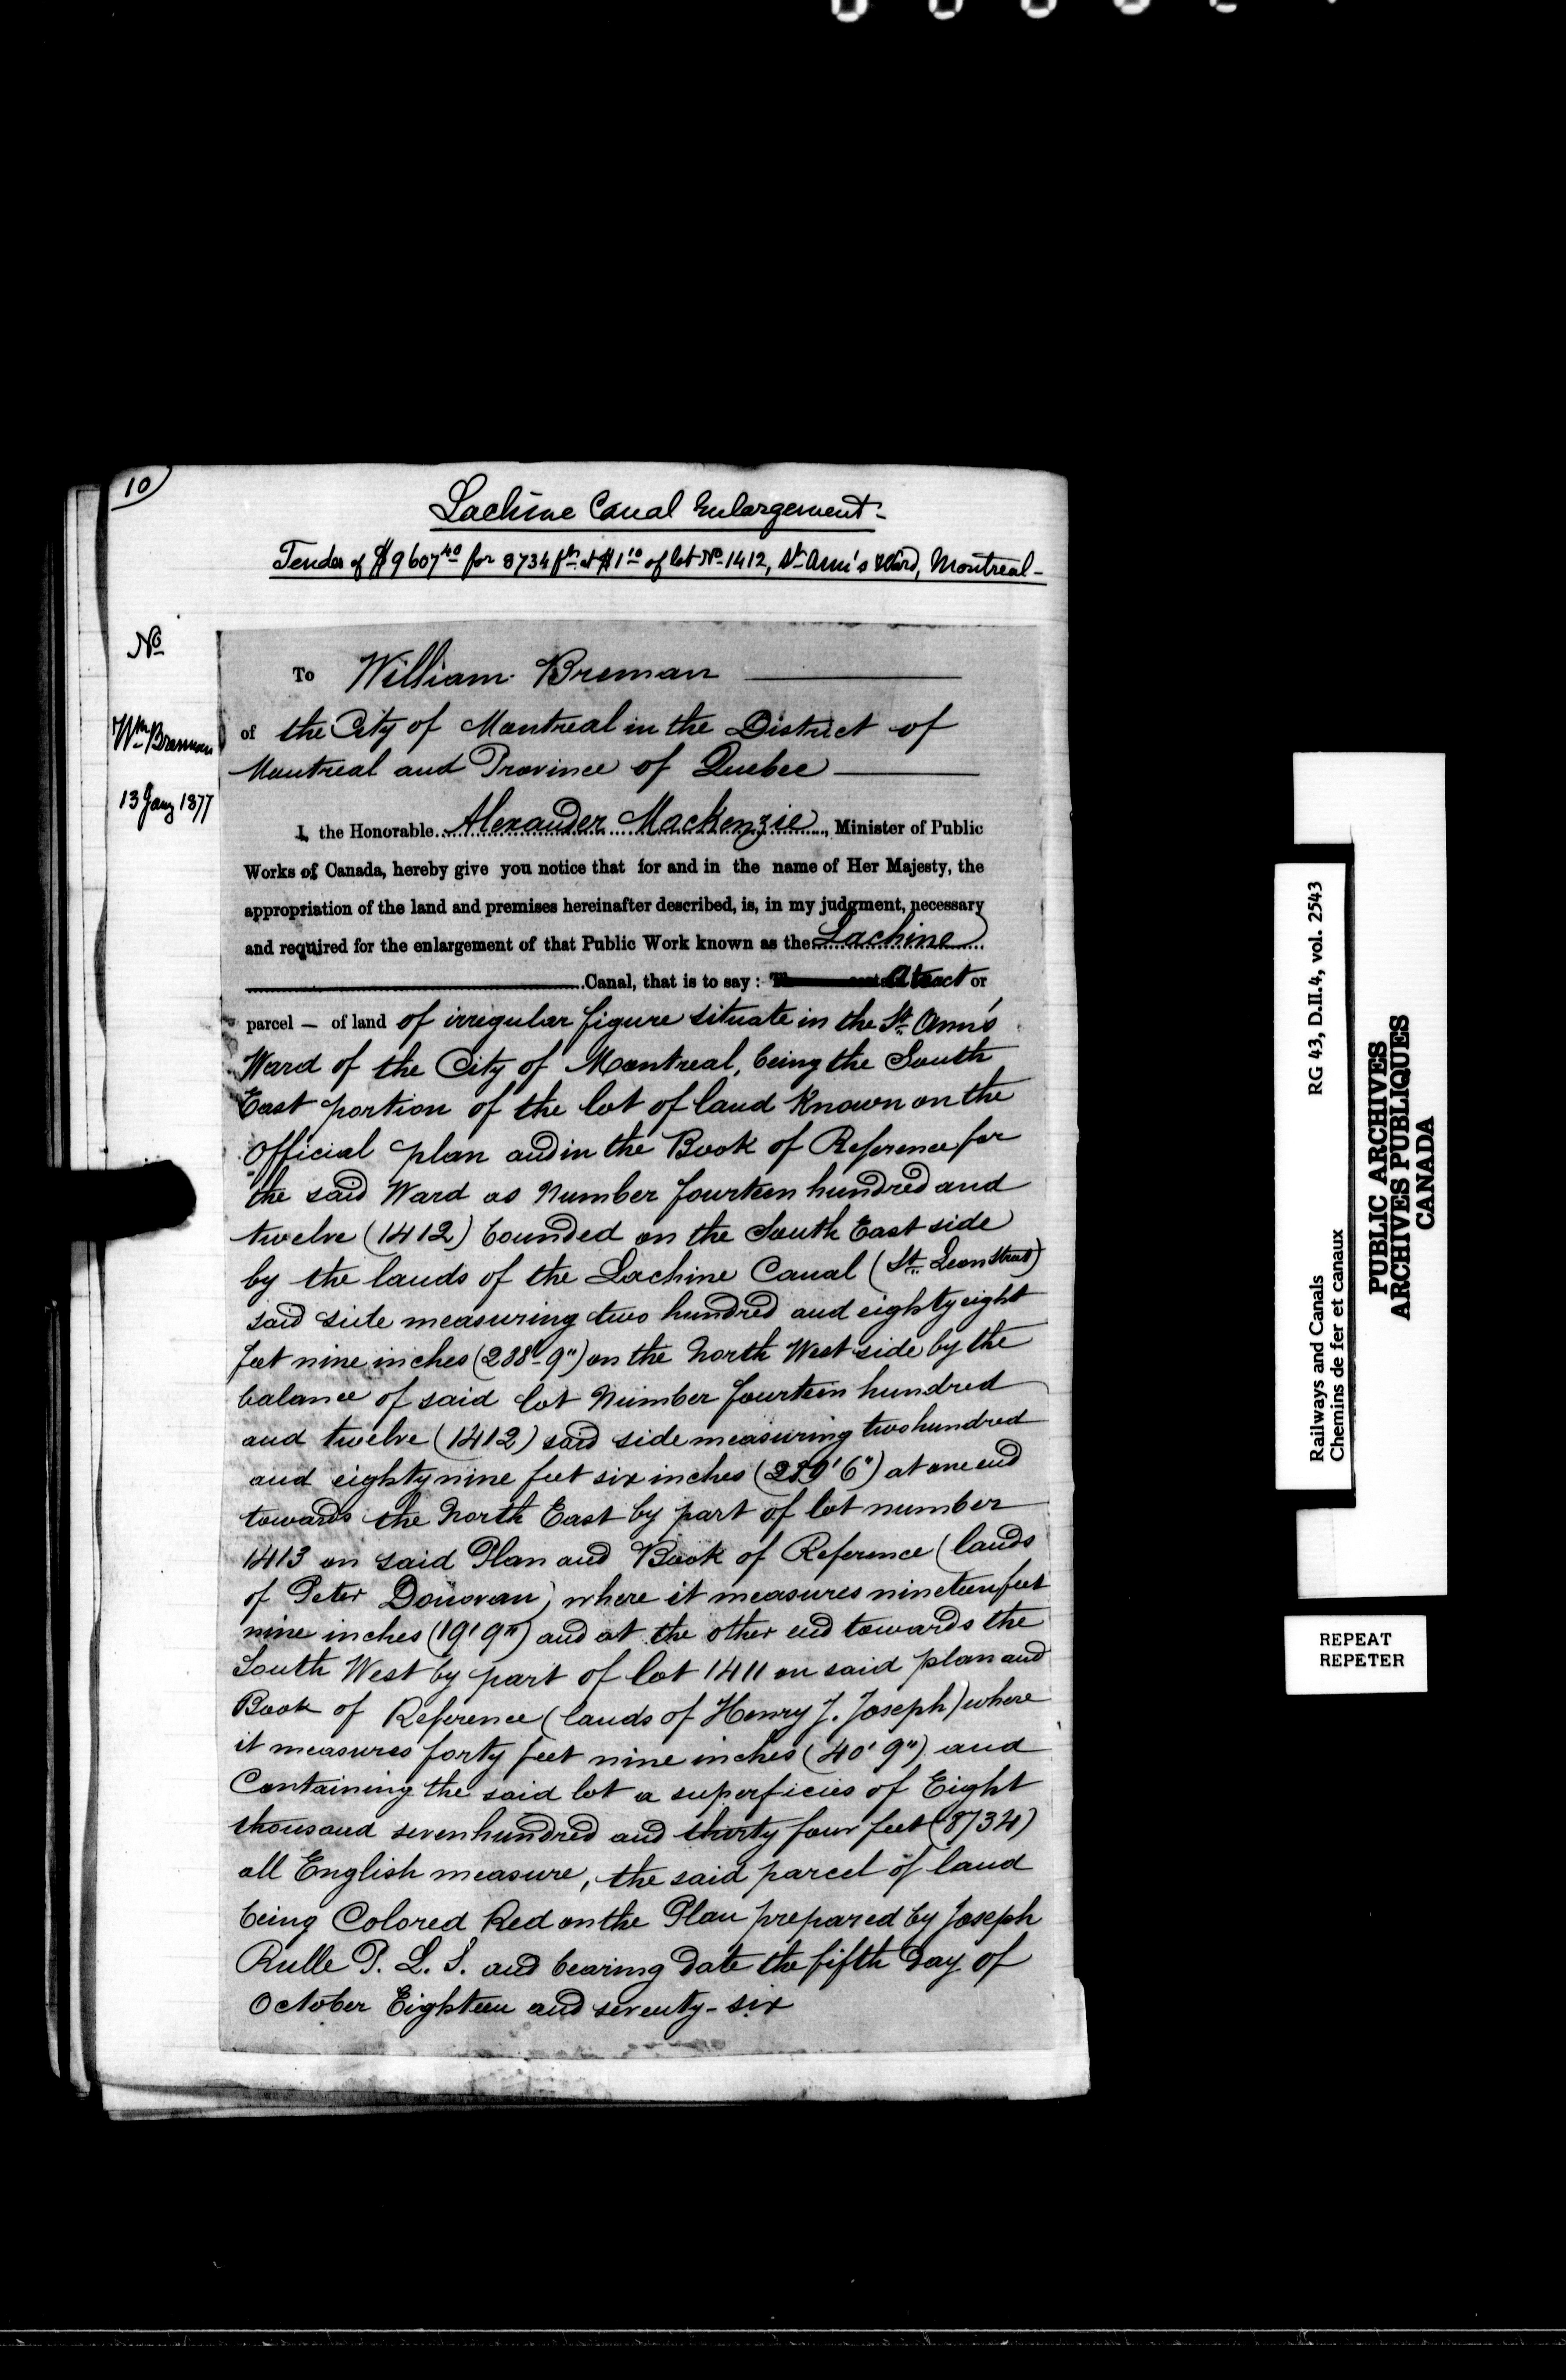 10
Lachine Canal Enlargement-
Tender of $9607.40 for 8734 ft. at $1.10 of lot No. 1412, St. Ann's Ward, Montreal-
No.
Wm. Brennan
13 Jany 1877
To William Brennan
of the City of Montreal in the District of
Montreal and Province of Quebec
I, the Honorable Alexander Mackenzie, Minister of Public
Works of Canada, hereby give you notice that for and in the name of Her Majesty, the
appropriation of the land and premises hereinafter described, is, in my judgment, necessary
and required for the enlargement of that Public Work known as the Lachine
Canal, that is to say: A tract or
parcel - of land of irregular figure situate in the St. Ann's
Ward of the City of Montreal, being the South
East portion of the lot of land Known on the
Official plan and in the Book of Reference for
the said Ward as Number fourteen hundred and
twelve (1412) bounded on the South East side
by the lands of the Lachine Canal (St. Leon Street)
said side measuring two hundred and eighty eight
feet nine inches (288'-9") on the North West side by the
balance of said lot Number fourteen hundred
and twelve (1412) said side measuring two hundred
and eighty nine feet six inches (289' 6") at one end
towards the North East by part of lot number
1413 on said Plan and Book of Reference (lands
of Peter Donovan) where it measures nineteen feet
nine inches (19' 9") and at the other end towards the
South West by part of lot 1411 on said plan and
Book of Reference (lands of Henry J. Joseph) where
it measures forty feet nine inches (40' 9") and
Containing the said lot a superficies of Eight
thousand seven hundred and thirty four feet (8734)
all English measure, the said parcel of land
being Colored Red on the Plan prepared by Joseph
Rielle P. L. S. and bearing date the fifth day of
October Eighteen and seventy-six
Railways and Canals RG 43, D.II.4, vol. 2543
Chemins de fer et canaux
PUBLIC ARCHIVES
ARCHIVES PUBLIQUES
CANADA
REPEAT
REPETER